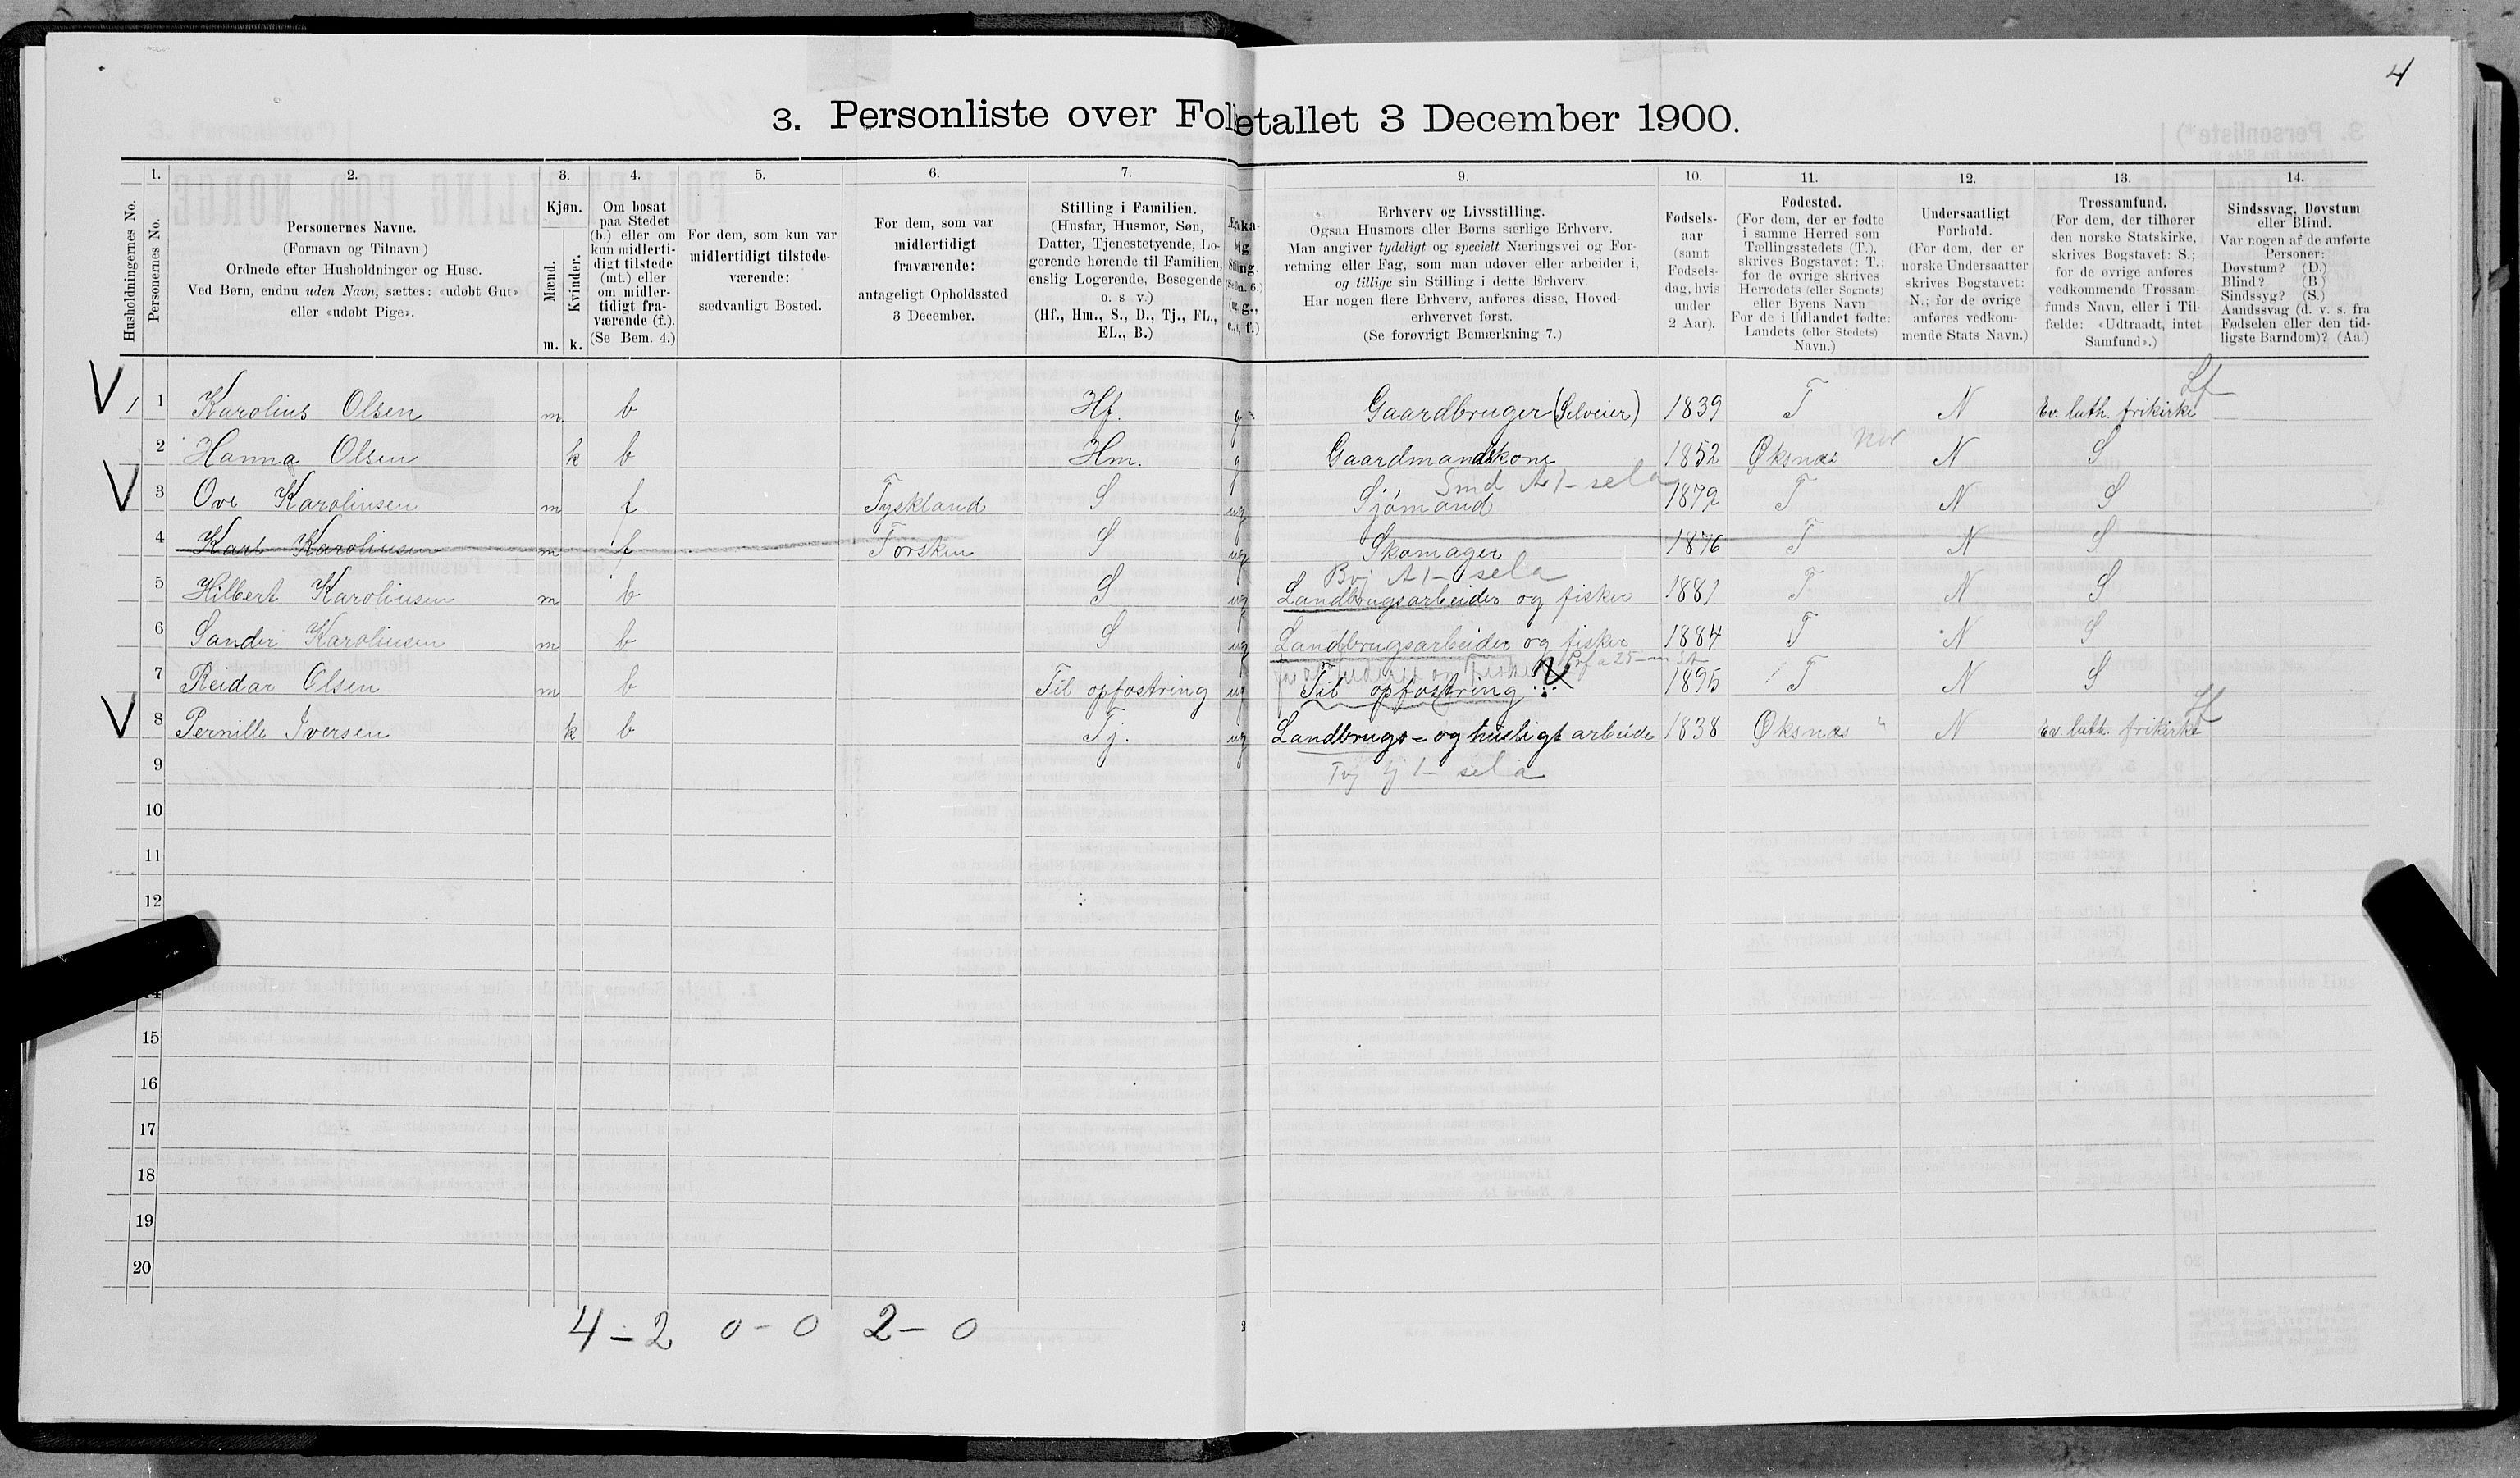 4
3. Personliste over Folketallet 3 December 1900.
1. 2. 3. 4. 5. 6. 7. 9. 10. 11. 12. 13. 14.
Husholdningernes No.
Personernes No.
Personernes Navne.
(Fornavn og Tilnavn)
Ordnede efter Husholdninger og Huse.
Ved Børn, endnu uden Navn, sættes: «udøbt Gut»
eller «udøbt Pige».
Kjøn.
Mænd.
Kvinder.
m. k.
Om bosat
paa Stedet
(b.) eller om
kun midlerti-
digt tilstede
(mt.) eller
om midler-
tidigt fra-
værende (f.).
(Se Bem. 4.)
For dem, som kun var
midlertidigt tilstede-
værende:
sædvanligt Bosted.
For dem, som var
midlertidigt
fraværende:
antageligt Opholdssted
3 December.
Stilling i Familien.
(Husfar, Husmor, Søn,
Datter, Tjenestetyende, Lo-
gerende hørende til Familien,
enslig Logerende, Besøgende
o. s. v.)
(Hf., Hm., S., D., Tj., FL.,
EL., B.)
Erhverv og Livsstilling.
Ogsaa Husmors eller Børns særlige Erhverv.
Man angiver tydeligt og specielt Næringsvei og For-
retning eller Fag, som man udøver eller arbeider i,
og tillige sin Stilling i dette Erhverv.
Har nogen flere Erhverv, anføres disse, Hoved-
erhvervet først.
(Se forøvrigt Bemærkning 7.)
Fødsels-
aar
(samt
Fødsels-
dag, hvis
under
2 Aar).
Fødested.
(For dem, der er fødte
i samme Herred som
Tællingsstedets (T.),
skrives Bogstavet: T.;
for de øvrige skrives
Herredets (eller Sognets)
eller Byens Navn
For de i Udlandet fødte:
Landets (eller Stedets)
Navn.)
Undersaatligt
Forhold.
(For dem, der er
norske Undersaatter
skrives Bogstavet:
N.; for de øvrige
anføres vedkom-
mende Stats Navn.)
Trossamfund.
(For dem, der tilhører
den norske Statskirke,
skrives Bogstavet: S.;
for de øvrige anføres
vedkommende Trossam-
funds Navn, eller i Til-
fælde: «Udtraadt, intet
Samfund».)
Sindssvag, Døvstum
eller Blind.
Var nogen af de anførte
Personer:
Døvstum? (D.)
Blind? (B.)
Sindssyg? (S.)
Aandssvag (d. v. s. fra
Fødselen eller den tid-
ligste Barndom)? (Aa.)
1 Karolius Olsen m b Hf. g Gaardbruger (Selveier) 1839 T N Ev. luth. frikirke
2 Hanna Olsen k b Hm. g Gaardmandskone 1852 Øksnæs N S
3 Ove Karoliusen m f Tyskland S ug Sjømand 1872 T N S
4 Karl Karoliusen m f Torsken S ug Skomager 1876 T N S
5 Hilbert Karoliusen m b S ug Landbrugsarbeider og fisker 1881 T N S
6 Sander Karoliusen m b S ug Landbrugsarbeider og fisker 1884 T N S
7 Reidar Olsen m b Til opfostring ug Til opfostring 1895 T N S
8 Pernille Iversen k b Tj. ug Landbrugs- og husligt arbeide 1838 Øksnæs " N Ev. luth. frikirke
9
10
11
12
14
15
16
17
18
19
20
4 - 2 0 - 0 2 - 0